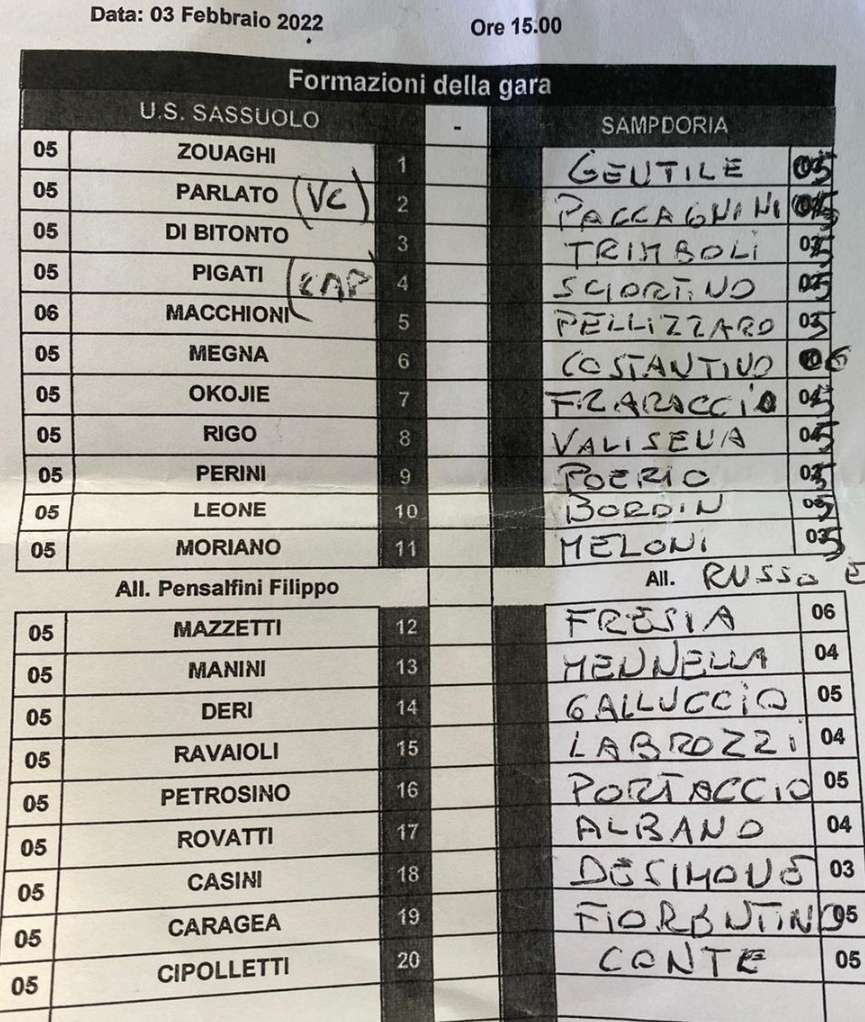 Data: 03 Febbraio 2022 Ore 15.00
Formazioni della gara
U.S. SASSUOLO - SAMPDORIA
05 ZOUAGHI 1 GENTILE 05
05 PARLATO (VC) 2 PACCAGNINI 05
05 DI BITONTO 3 TRIMBOLI 05
05 PIGATI (CAP) 4 SCIORTINO 05
06 MACCHIONI 5 PELLIZZARO 05
05 MEGNA 6 COSTANTINO 06
05 OKOJIE 7 05
05 RIGO 8 VALISENA 05
05 PERINI 9 POERIO 05
05 LEONE 10 BORDIN 05
05 MORIANO 11 MELONI 05
All. Pensalfini Filippo All. RUSSO E
05 MAZZETTI 12 FRESIA 06
05 MANINI 13 MENNELLA 04
05 DERI 14 GALLUCCIO 05
05 RAVAIOLI 15 LABROZZI 04
05 PETROSINO 16 PORTACCIO 05
05 ROVATTI 17 ALBANO 04
05 CASINI 18 DESIMONE 03
05 CARAGEA 19 FIORENTINO 05
05 CIPOLLETTI 20 CONTE 05